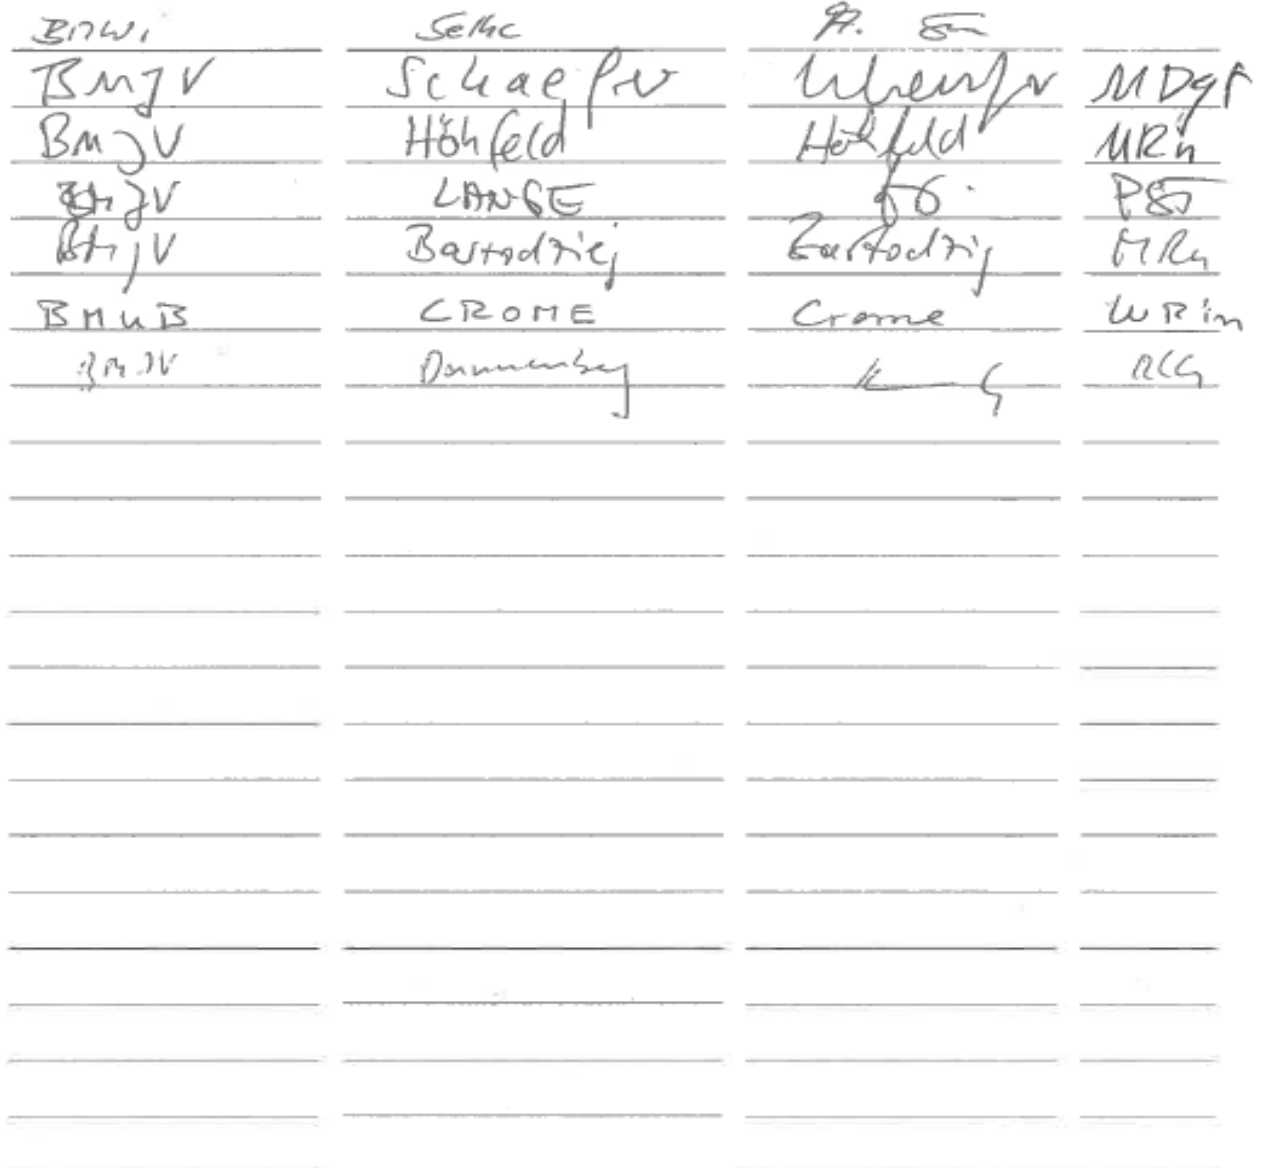 BMWi Selke
BMJV Schaefer MDgt
BMJV Höhfeld Höhfeld MRn
BMJV LANGE PSt
BMJV Bartodziej Bartodziej MRn
BMUB CROME Crome WRin
BMJV Dannenberg